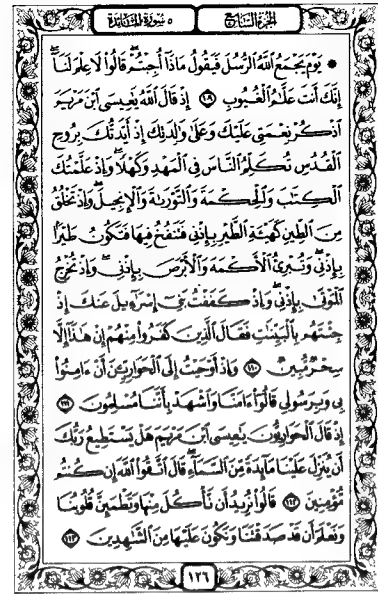 الجزء السابع ٥ سورة المائدة
۞ يَوْمَ يَجْمَعُ اللَّهُ الرُّسُلَ فَيَقُولُ مَاذَا أُجِبْتُمْ قَالُوا لَا عِلْمَ لَنَا
إِنَّكَ أَنتَ عَلَّامُ الْغُيُوبِ ١٠٩ إِذْ قَالَ اللَّهُ يَٰعِيسَى ابْنَ مَرْيَمَ
اذْكُرْ نِعْمَتِي عَلَيْكَ وَعَلَىٰ وَٰلِدَتِكَ إِذْ أَيَّدتُّكَ بِرُوحِ
الْقُدُسِ تُكَلِّمُ النَّاسَ فِي الْمَهْدِ وَكَهْلًا وَإِذْ عَلَّمْتُكَ
الْكِتَٰبَ وَالْحِكْمَةَ وَالتَّوْرَىٰةَ وَالْإِنجِيلَ وَإِذْ تَخْلُقُ
مِنَ الطِّينِ كَهَيْـَٔةِ الطَّيْرِ بِإِذْنِي فَتَنفُخُ فِيهَا فَتَكُونُ طَيْرًا
بِإِذْنِي وَتُبْرِئُ الْأَكْمَهَ وَالْأَبْرَصَ بِإِذْنِي وَإِذْ تُخْرِجُ
الْمَوْتَىٰ بِإِذْنِي وَإِذْ كَفَفْتُ بَنِي إِسْرَٰٓءِيلَ عَنكَ إِذْ
جِئْتَهُم بِالْبَيِّنَٰتِ فَقَالَ الَّذِينَ كَفَرُوا مِنْهُمْ إِنْ هَٰذَا إِلَّا
سِحْرٌ مُّبِينٌ ١١٠ وَإِذْ أَوْحَيْتُ إِلَى الْحَوَارِيِّـۧنَ أَنْ ءَامِنُوا
بِي وَبِرَسُولِي قَالُوا ءَامَنَّا وَاشْهَدْ بِأَنَّنَا مُسْلِمُونَ ١١١
إِذْ قَالَ الْحَوَارِيُّونَ يَٰعِيسَى ابْنَ مَرْيَمَ هَلْ يَسْتَطِيعُ رَبُّكَ
أَن يُنَزِّلَ عَلَيْنَا مَآئِدَةً مِّنَ السَّمَآءِ قَالَ اتَّقُوا اللَّهَ إِن كُنتُم
مُّؤْمِنِينَ ١١٢ قَالُوا نُرِيدُ أَن نَّأْكُلَ مِنْهَا وَتَطْمَئِنَّ قُلُوبُنَا
وَنَعْلَمَ أَن قَدْ صَدَقْتَنَا وَنَكُونَ عَلَيْهَا مِنَ الشَّٰهِدِينَ ١١٣
١٢٦